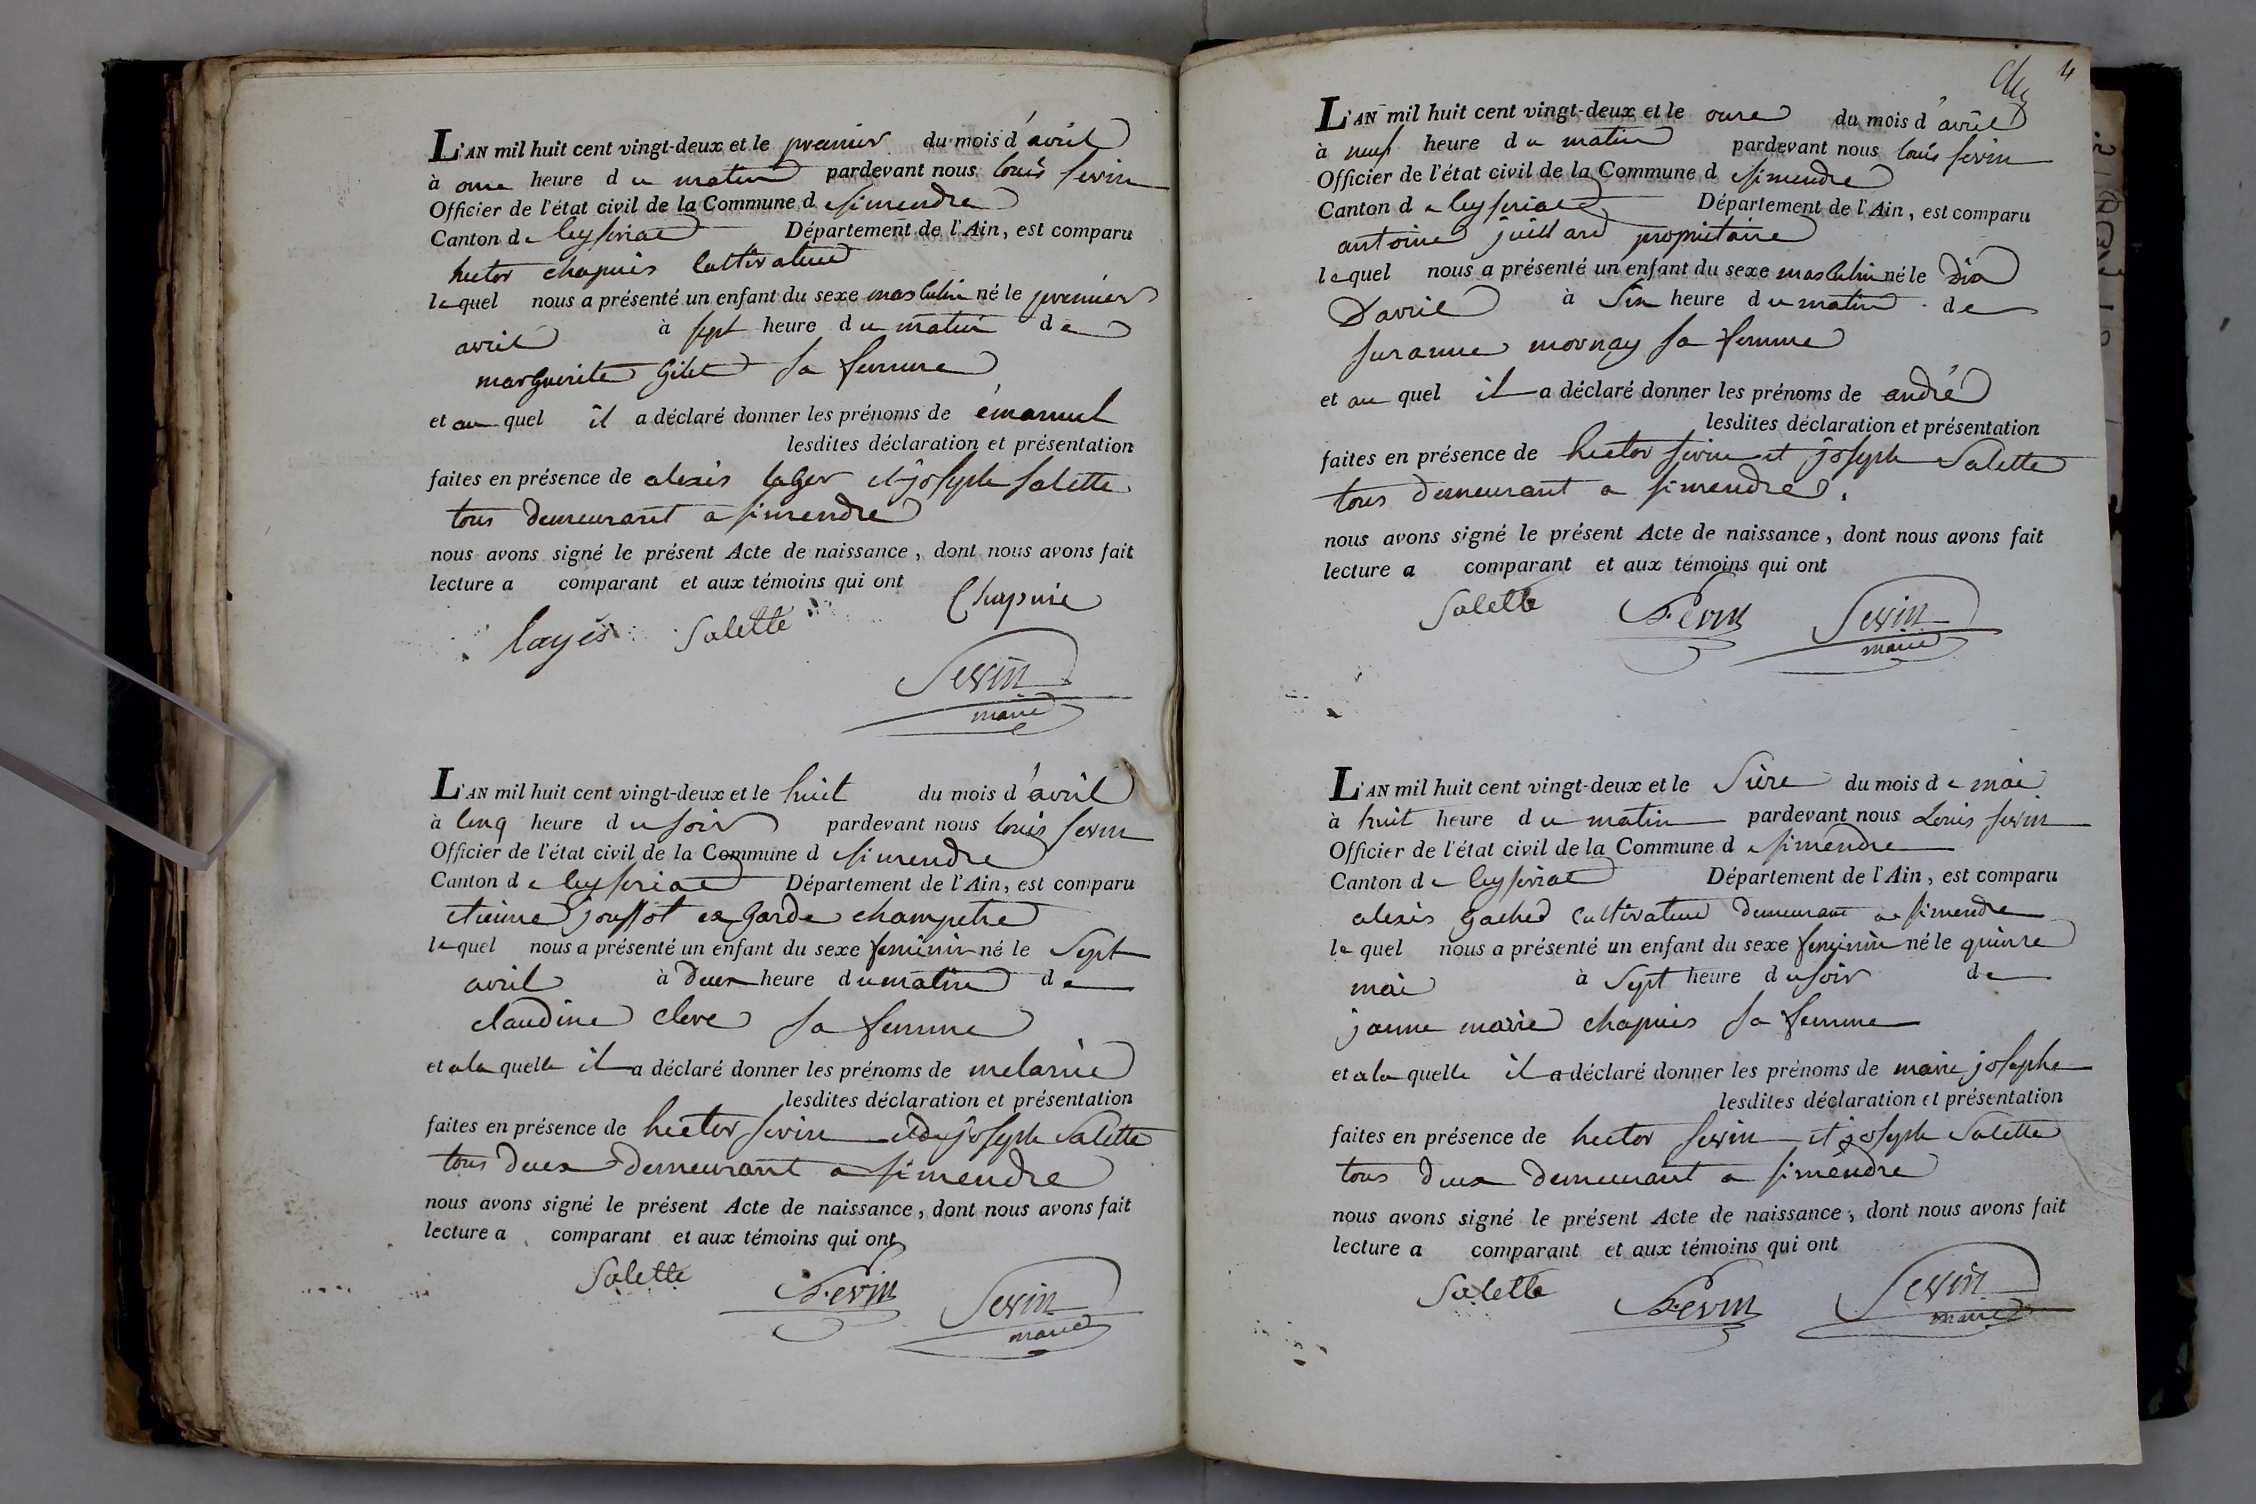 L'AN mil huit cent vingt-deux et le premier du mois d'avril
à onze heure du matin pardevant nous louis sevin
Officier de l'état civil de la Commune de simendre
Canton de Ceyseriat Département de l'Ain, est comparu
hector chapuis Cultivateur
lequel nous a présenté un enfant du sexe masculin né le premier
avril à sept heure du matin de
marguerite Gilet sa femme
et au quel il a déclaré donner les prénoms de émanuel
lesdites déclaration et présentation
faites en présence de alexis et joseph salette
tous demeurant a simendre
nous avons signé le présent Acte de naissance, dont nous avons fait
lecture a comparant et aux témoins qui ont
Chapuis
layés Salette
Sevin
maire
L'AN mil huit cent vingt-deux et le huit du mois d'avril
à Cinq heure du soir pardevant nous louis sevin
Officier de l'état civil de la Commune de simendre
Canton de Ceyseriat Département de l'Ain, est comparu
etienne joussot ex garde champetre
lequel nous a présenté un enfant du sexe feminin né le Sept
avril à deux heure du matin de
claudine cleve sa femme
et a la quelle il a déclaré donner les prénoms de melanie
lesdites déclaration et présentation
faites en présence de hector sevin et de joseph Salette
tous deux demeurant a simendre
nous avons signé le présent Acte de naissance, dont nous avons fait
lecture a comparant et aux témoins qui ont
Salette h. Sevin Sevin
maire
4
L'AN mil huit cent vingt-deux et le onze du mois d'avril
à neuf heure du matin pardevant nous louis sevin
Officier de l'état civil de la Commune de simendre
Canton de Ceyseriat Département de l'Ain, est comparu
antoine juillard propriétaire
lequel nous a présenté un enfant du sexe masculin né le Dix
D'avril à Six heure du matin de
suzanne mornay sa femme
et au quel il a déclaré donner les prénoms de andré
lesdites déclaration et présentation
faites en présence de hector sevin et joseph Salette
tous demeurant a simendre.
nous avons signé le présent Acte de naissance, dont nous avons fait
lecture a comparant et aux témoins qui ont
Salette h. Sevin Sevin
maire
L'AN mil huit cent vingt-deux et le Sèze du mois de mai
à huit heure du matin pardevant nous Louis sevin
Officier de l'état civil de la Commune de simendre
Canton de Ceyseriat Département de l'Ain, est comparu
alexis gached Cultivateur demeurant a simendre
lequel nous a présenté un enfant du sexe feminin né le quinze
mai à Sept heure du soir de
janne marie chapuis sa femme
et a la quelle il a déclaré donner les prénoms de marie josephe
lesdites déclaration et présentation
faites en présence de hector sevin et joseph Salette
tous deux demeurant a simendre
nous avons signé le présent Acte de naissance, dont nous avons fait
lecture a comparant et aux témoins qui ont
Salette h. Sevin Sevin
maire